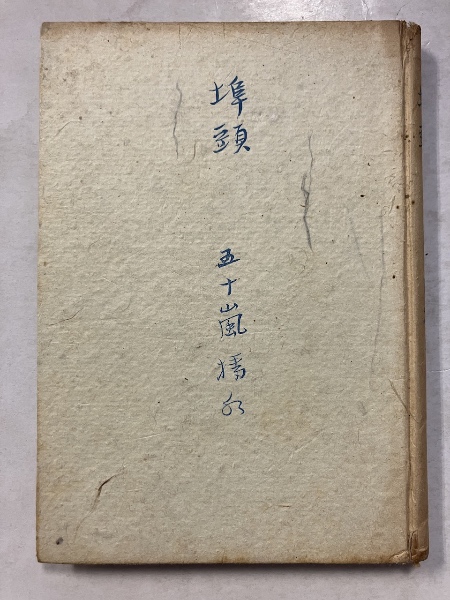 埠頭
五十嵐播水